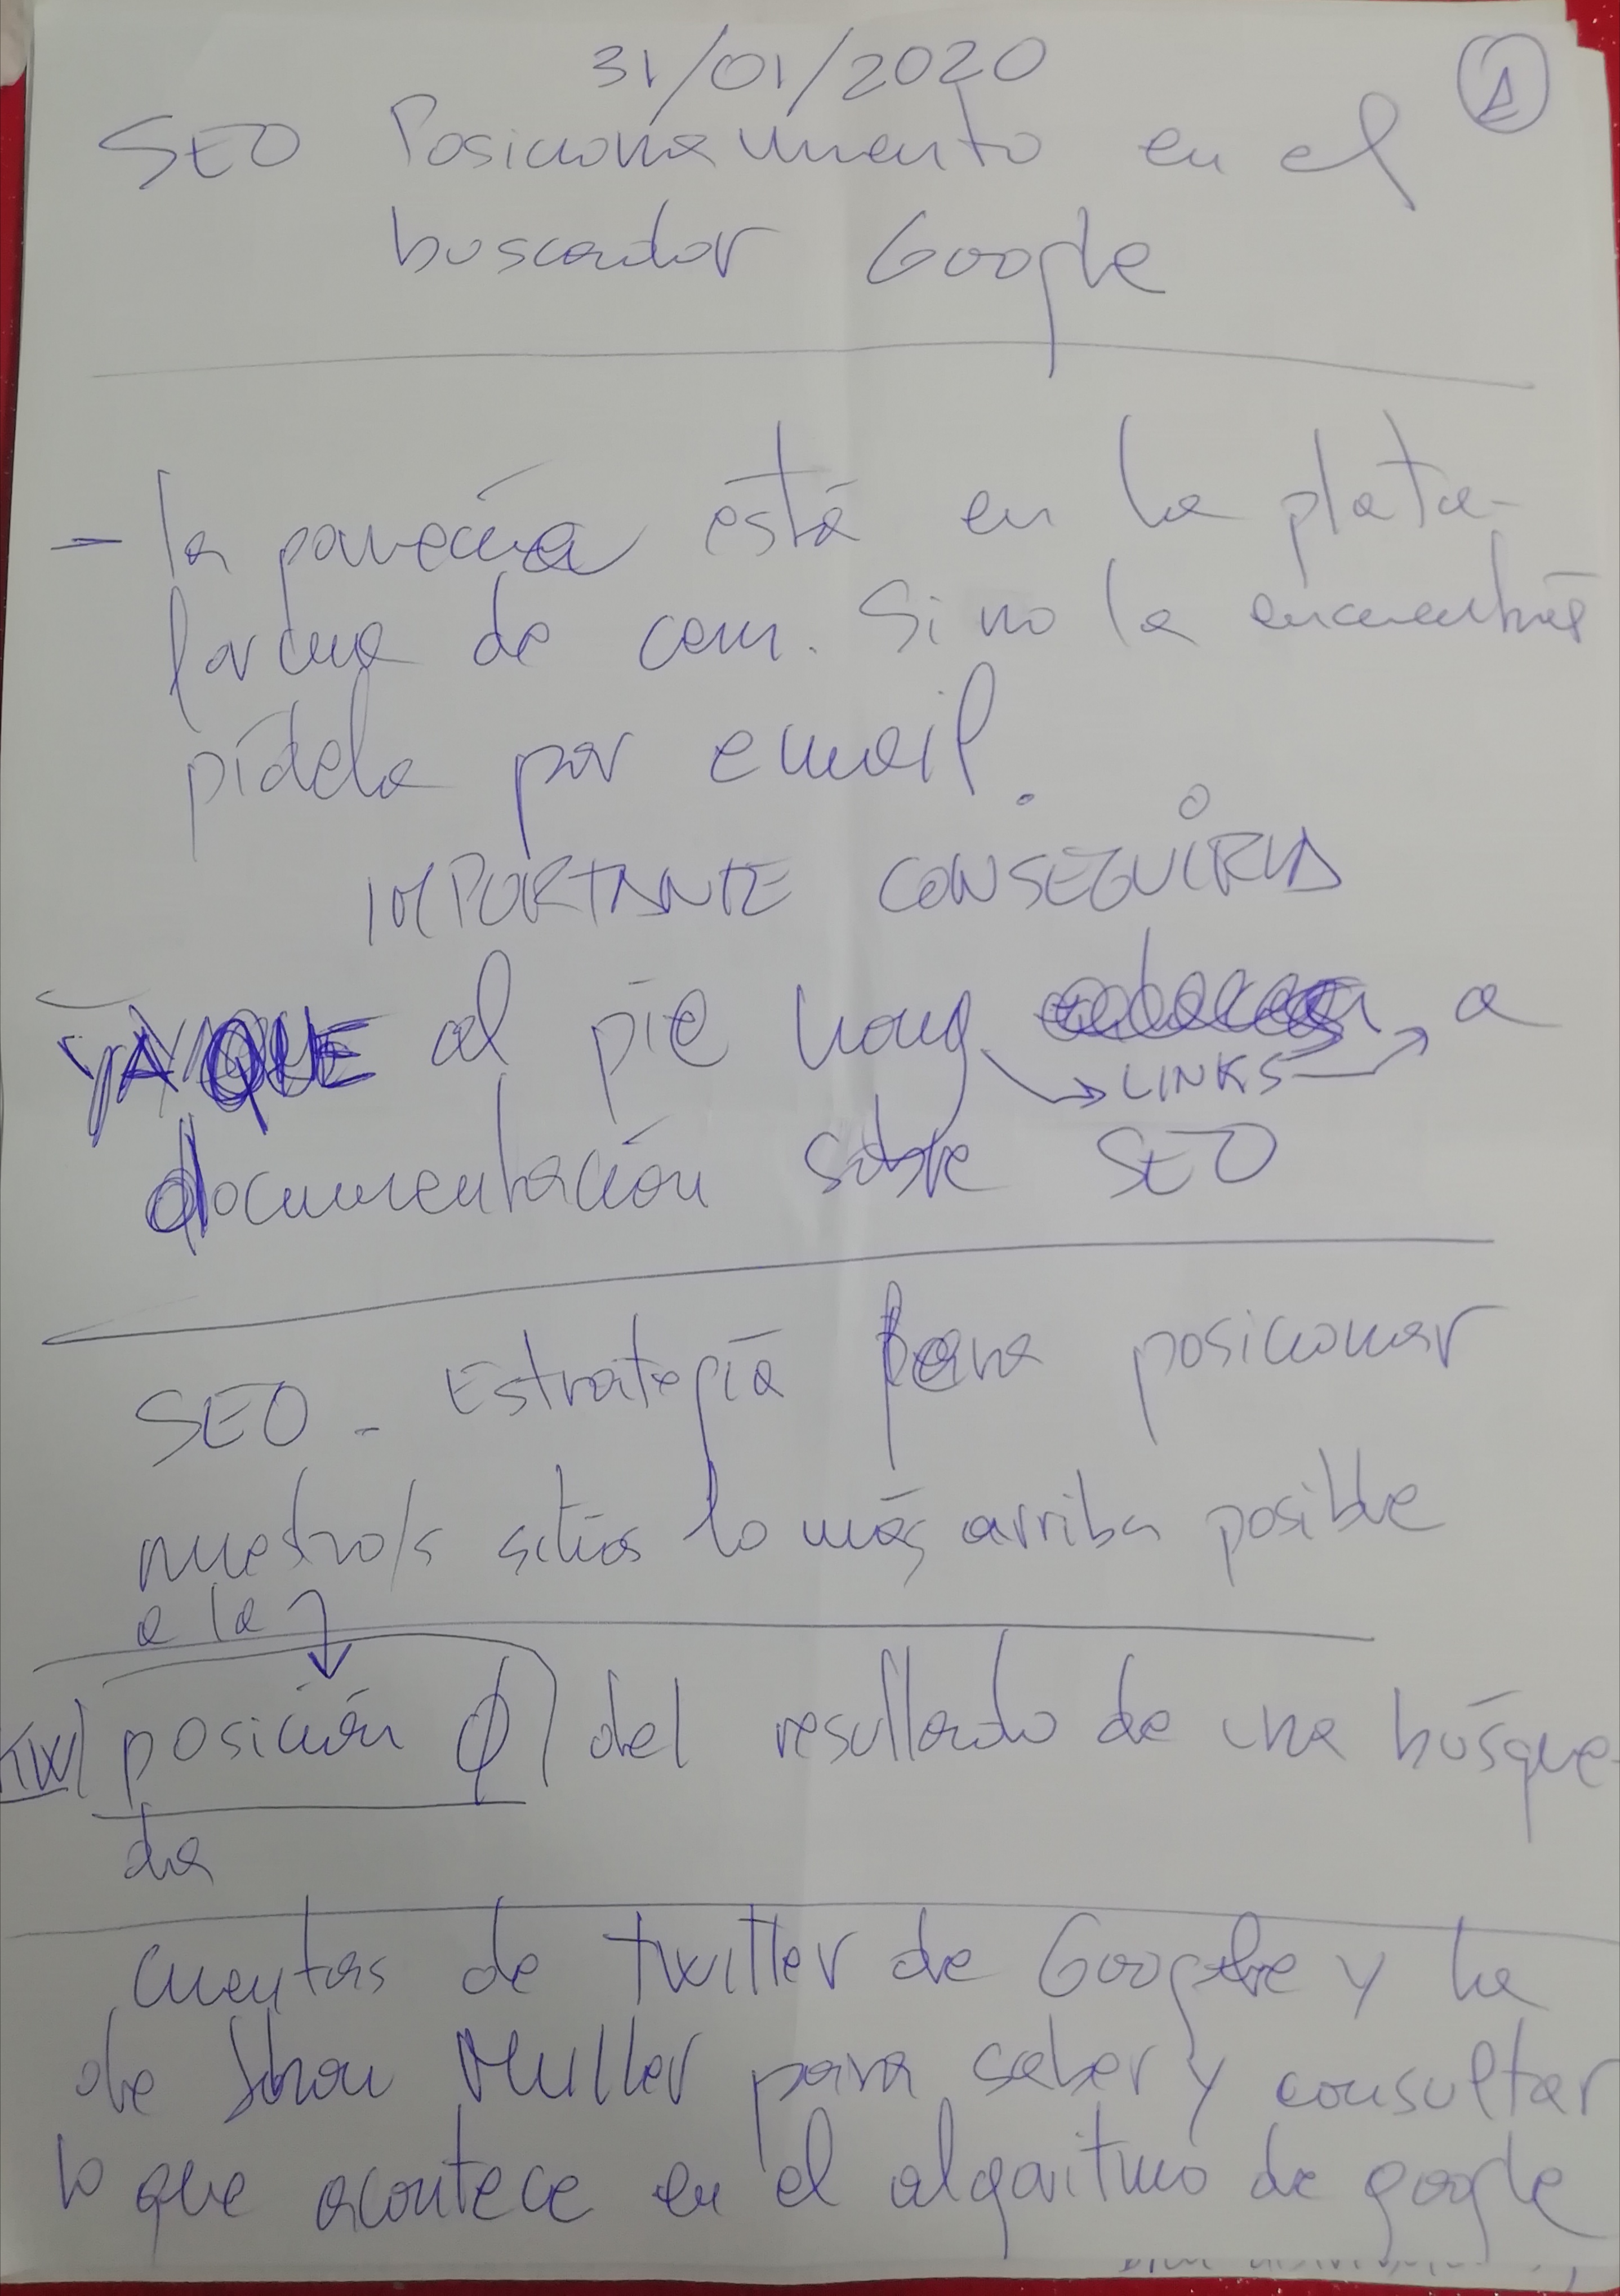 31/01/2020
1
SEO Posicionamiento en el
buscador Google
- la ponencia está en la plata-
forma de cem. Si no la encuentras
pídela por email.
IMPORTANTE CONSEGUIRLA
YA QUE al pie hay a
LINKS
documentación sobre SEO
SEO - Estrategia para posicionar
nuestro/s sitios lo más arriba posible
a la
KW posición φ del resultado de una búsque-
da
Cuentas de twitter de Google y la
de Muller para saber y consultar
lo que acontece en el algoritmo de google